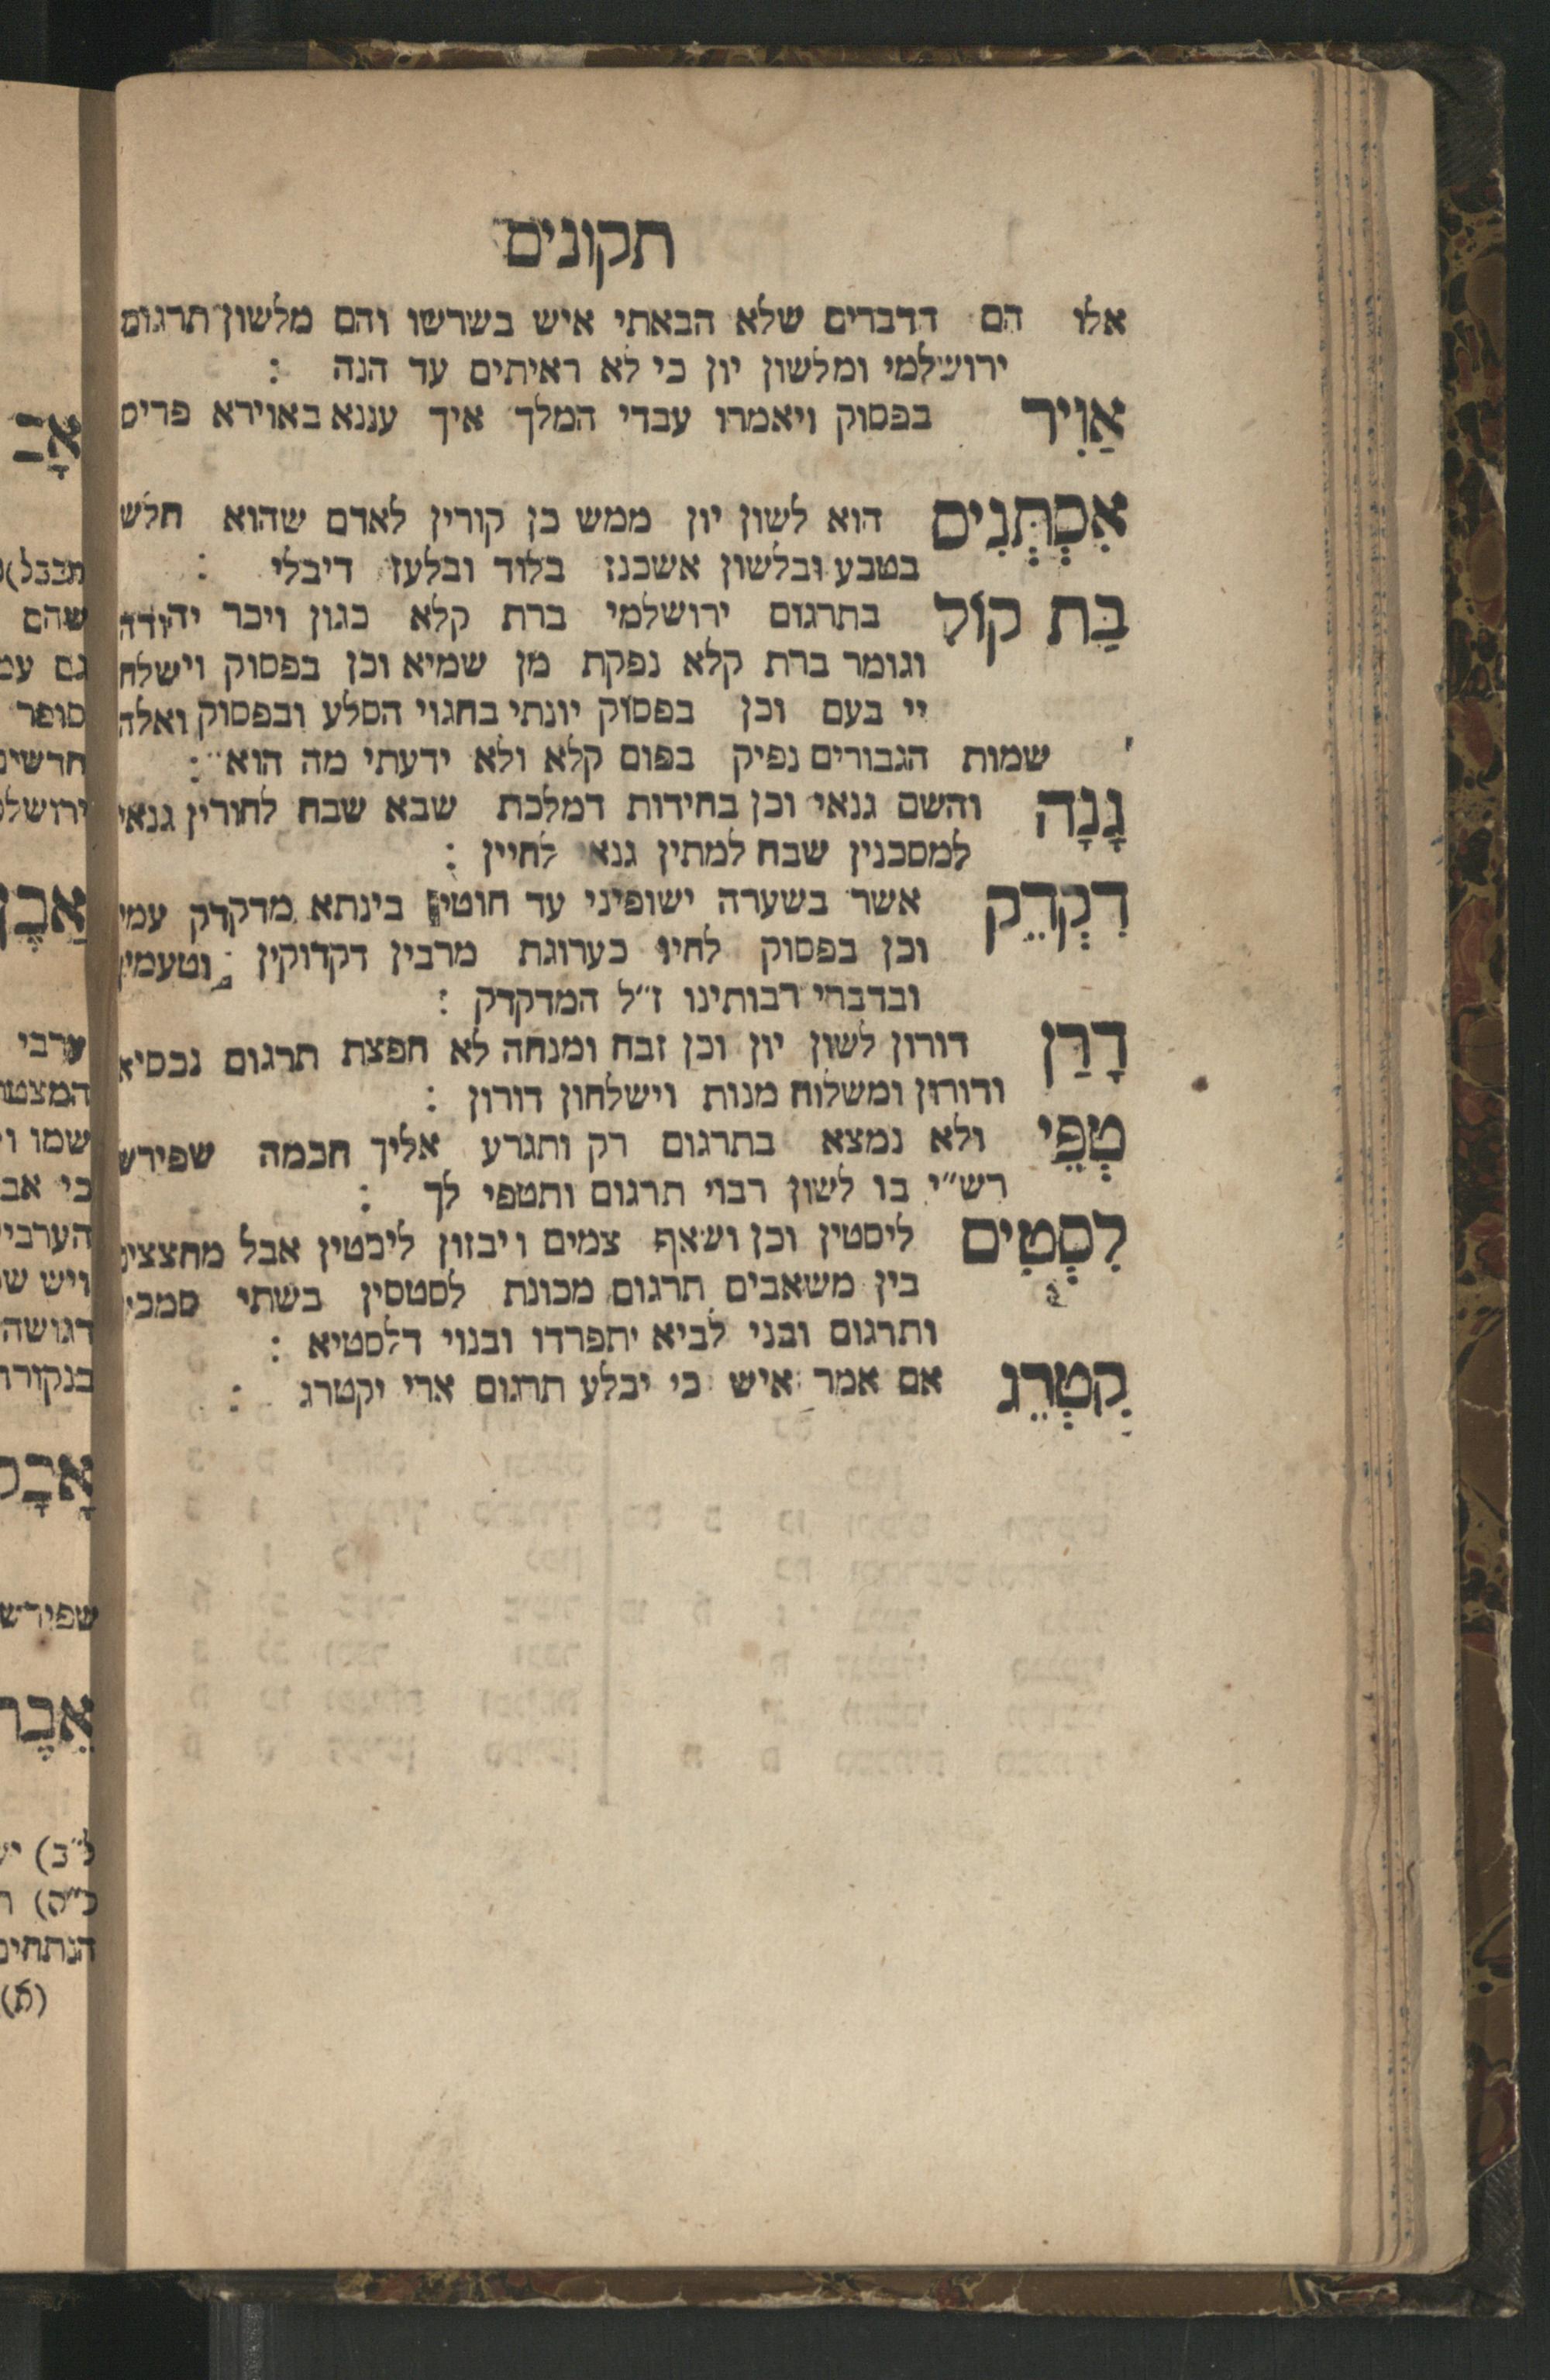 תקונים
אלו הם הדברים שלא הבאתי איש בשרשו והם מלשון תרגום
ירושלמי ומלשון יון כי לא ראיתים עד הנה :
אַוִיר בפסוק ויאמרו עבדי המלך איך עננא באוירא פריס
אִסְתְּנִיס הוא לשון יון ממש כן קורין לאדם שהוא חלש
בטבע ובלשון אשכנז בלוד ובלעז דיבלי :
בַּת קוֹל בתרגום ירושלמי ברת קלא כגון ויכר יהודה
וגומר ברת קלא נפקת מן שמיא וכן בפסוק וישלח
יי בעם וכן בפסוק יונתי בחגוי הסלע ובפסוק ואלה
שמות הגבורים נפיק בפום קלא ולא ידעתי מה הוא :
גָנָה והשם גנאי וכן בחידות דמלכת שבא שבח לחורין גנאי
למסכנין שבח למתין גנאי לחיין :
דִקְדֵק אשר בשערה ישופיני עד חוטי בינתא מדקדק עמי
וכן בפסוק לחיו כערוגת מרבין דקדוקין וטעמין
ובדברי רבותינו ז״ל המדקדק :
דָרַן דורון לשון יון וכן זבח ומנחה לא חפצת תרגום נכסיא
ודורון ומשלוח מנות וישלחון דורון :
טְפֵי ולא נמצא בתרגום רק ותגרע אליך חכמה שפירש
רש״י בו לשון רבוי תרגום ותטפי לך :
לִסְטִים ליסטין וכן ושאף צמים ויבזון ליסטין אבל מחצצים
בין משאבים תרגום מכונת לסטסין בשתי סמכין
ותרגום ובני לביא יתפרדו ובנוי דלסטיא :
קִטְרֵג אם אמר איש כי יבלע תרגום ארי יקטרג :
שהם
סופר
ערבי
שפירש